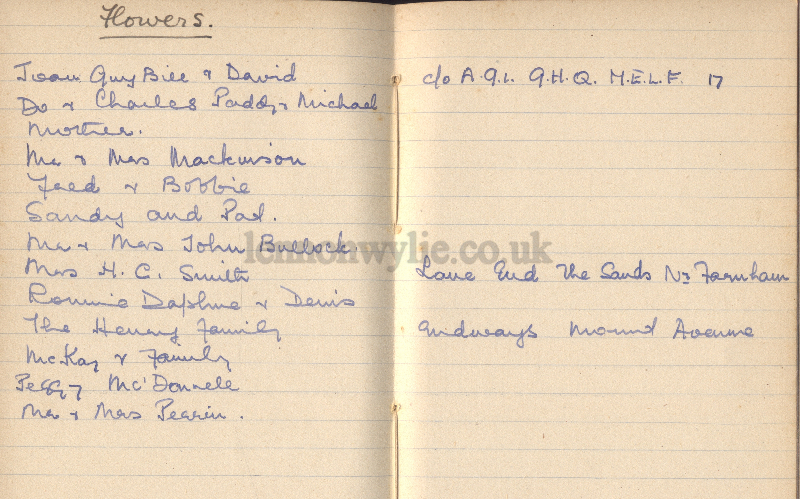 Flowers.
Joan Guy Bill & David
Do & Charles Paddy & Michael
Mother.
Mr & Mrs Mackinson
Fred & Bobbie
Sandy and Pat.
Mr & Mrs John Bullock
Mrs H. C. Smith
Ronnie Daphne & Denis
The Henry Family
McKay & Family
Peggy McDonnell
Mr & Mrs Perrin.
c/o A.G.L. G.H.Q. M.E.L.F. 17
Lane End The Sands Nr Farnham
Mound Avenue
lennonwylie.co.uk